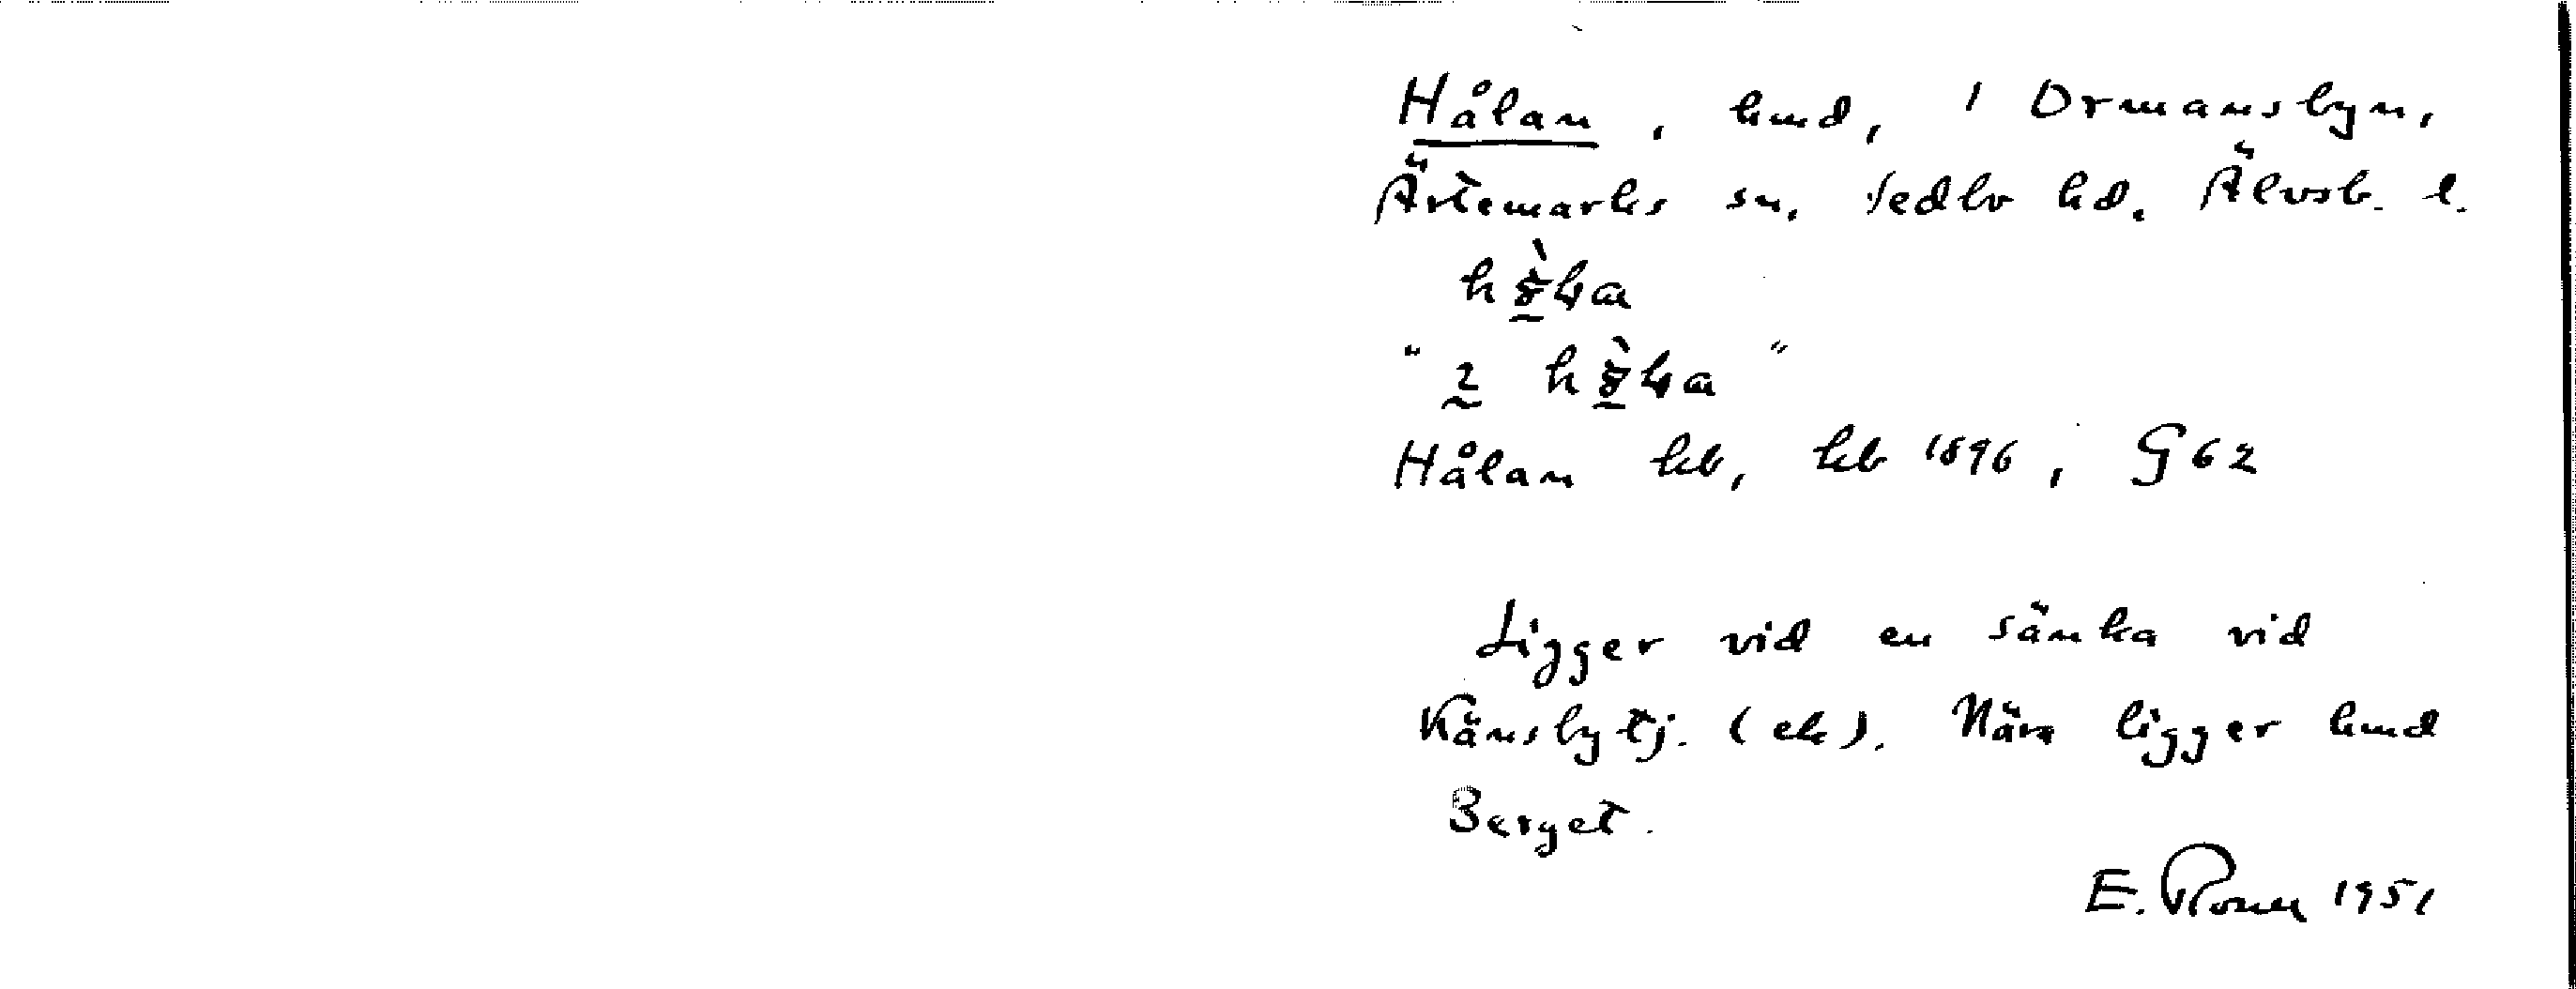 Hålan, hmd, i Ormansbyn,
Ärtemarks sn. Vedbo hd. Älvsb. l.
Hålan kb, hb 1896, G62
Ligger vid en sänka vid
Känsbytj. (ek). Nära ligger hmd
Berget.
E. 1951